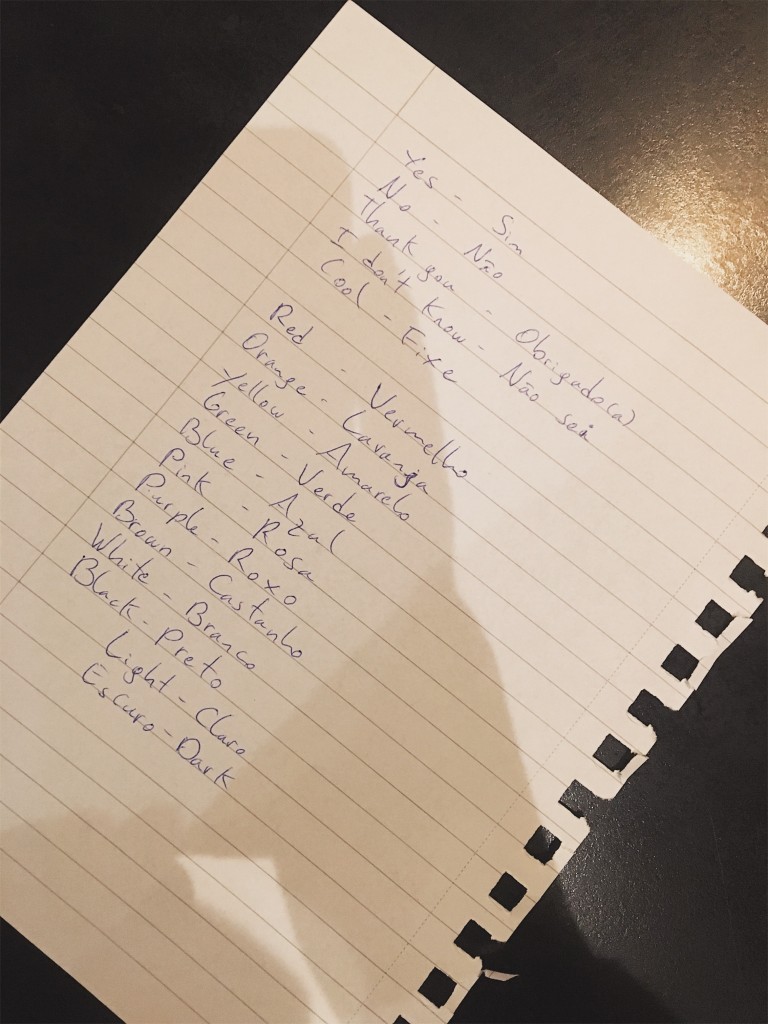 Yes - Sim
No - Não
Thank you - Obrigado(a)
I don't know - Não sei
Cool - Fixe
Red - Vermelho
Orange - Laranja
Yellow - Amarelo
Green - Verde
Blue - Azul
Pink - Rosa
Purple - Roxo
Brown - Castanho
White - Branco
Black - Preto
Light - Claro
Escuro - Dark